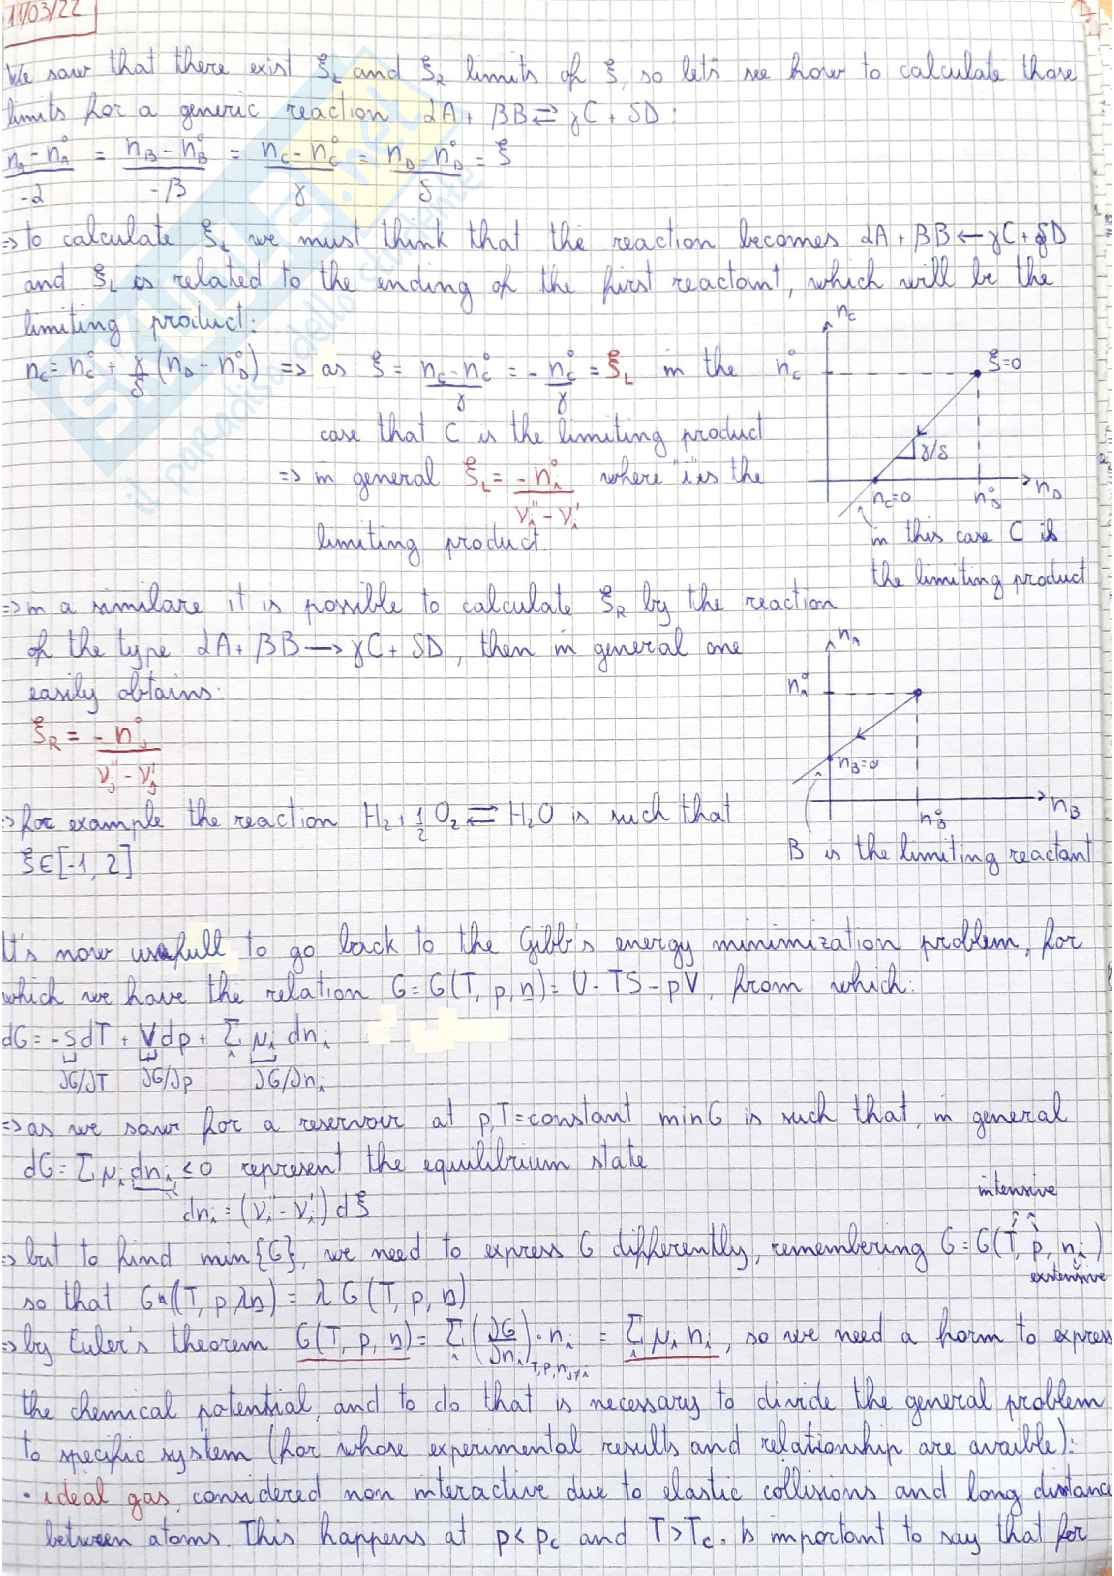 11/03/22
We saw that there exist ξL and ξR limits of ξ, so let's see how to calculate those
limits for a generic reaction αA + βB ⇄ γC + δD:
nA - n°A / -α = nB - n°B / -β = nC - n°C / γ = nD - n°D / δ = ξ
⇒ to calculate ξL we must think that the reaction becomes αA + βB ← γC + δD
and ξL is related to the ending of the first reactant, which will be the
limiting product:
nC = n°C + γ/δ (nD - n°D) ⇒ as ξ = nC - n°C / γ = - n°C / γ = ξL in the
case that C is the limiting product
⇒ in general ξL = -n°i / νi'' - νi' where "i" is the
limiting product.
nC
n°C
ξ=0
γ/δ
nC=0
n°D
nD
in this case C is
the limiting product
⇒ in a similare it is possible to calculate ξR by the reaction
of the type αA + βB → γC + δD, then in general one
easily obtains:
ξR = -n°j / νj'' - νj'
nA
n°A
nB=0
n°B
nB
B is the limiting reactant
⇒ for example the reaction H2 + 1/2 O2 ⇄ H2O is such that
ξ∈[-1, 2]
It's now usefull to go back to the Gibb's energy minimization problem, for
which we have the relation G = G(T, p, n) = U - TS - pV, from which:
dG = -SdT + Vdp + Σi μi dni
∂G/∂T ∂G/∂p ∂G/∂ni
⇒ as we saw for a reservoir at p,T = constant minG is such that, in general
dG = Σ μi dni ≤ 0 represent the equilibrium state
dni = (νi'' - νi') dξ
intensive
⇒ but to find min{G}, we need to express G differently, remembering G = G(T, p, ni)
extensive
so that G(T, p, λn) = λ G(T, p, n)
⇒ by Euler's theorem G(T, p, n) = Σi (∂G/∂ni)T,p,nj≠i · ni = Σi μi ni, so we need a form to express
the chemical potential, and to do that is necessary to divide the general problem
to specific system (for whose experimental results and relationship are avaible):
• ideal gas, considered non interactive due to elastic collisions and long distance
between atoms. This happens at p < pc and T > Tc. Is important to say that for